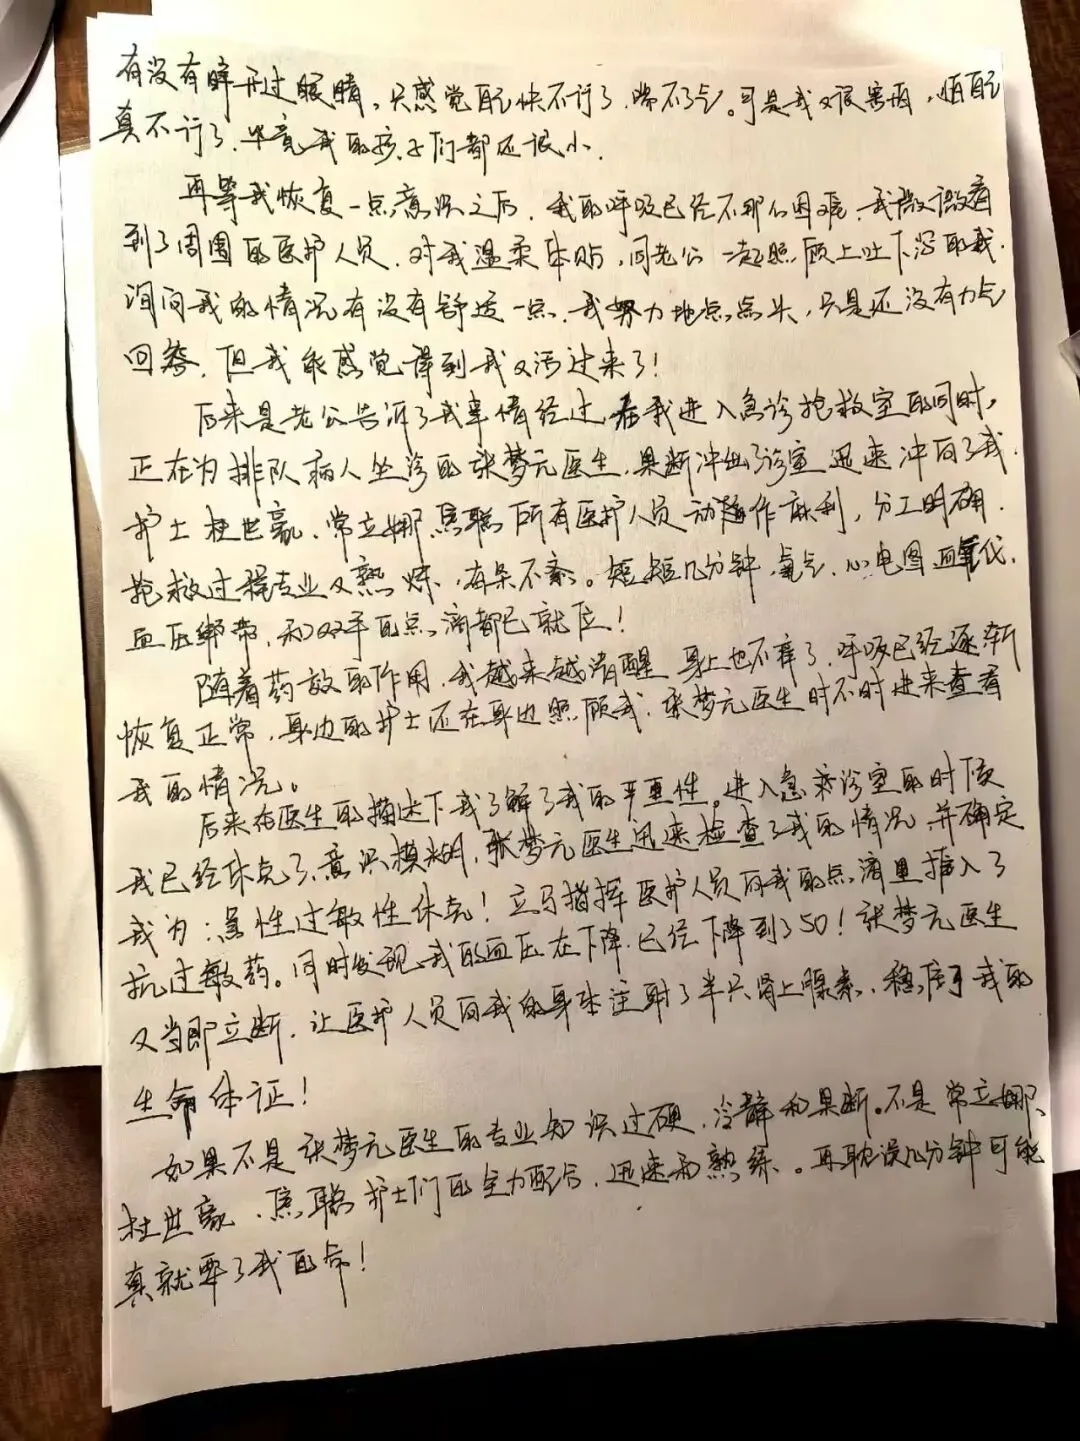 有没有睁开过眼睛，只感觉自己快不行了，喘不了气。可是我又很害怕，怕自己
真不行了，毕竟我的孩子们都还很小。
再等我恢复一点意识之后，我的呼吸已经不那么困难，我微微看
到了周围的医护人员，对我温柔体贴，同老公一起照顾上吐下泻的我，
询问我的情况有没有舒适一点，我努力地点点头，只是还没有力气
回答，但我能感觉得到我又活过来了！
后来是老公告诉了我事情经过，在我进入急诊抢救室的同时，
正在为排队病人坐诊的张梦元医生，果断冲出了诊室迅速冲向了我，
护士杜世豪、常立娜、焦聪所有医护人员动作麻利，分工明确，
抢救过程专业又熟练，有条不紊。短短几分钟，氧气、心电图、血氧仪、
血压绑带，和双手的点滴都已就位！
随着药效的作用，我越来越清醒，身上也不痒了，呼吸已经逐渐
恢复正常，身边的护士还在身边照顾我，张梦元医生时不时进来查看
我的情况。
后来在医生的描述下我了解了我的严重性。进入急救诊室的时候
我已经休克了，意识模糊，张梦元医生迅速检查了我的情况，并确定
我为：急性过敏性休克！立马指挥医护人员向我的点滴里插入了
抗过敏药。同时发现我的血压在下降，已经下降到了50！张梦元医生
又当即立断，让医护人员向我的身体注射了半只肾上腺素，稳住了我的
生命体证！
如果不是张梦元医生的专业知识过硬，冷静和果断。不是常立娜、
杜世豪、焦聪护士们的全力配合，迅速和熟练。再耽误几分钟可能
真就要了我的命！